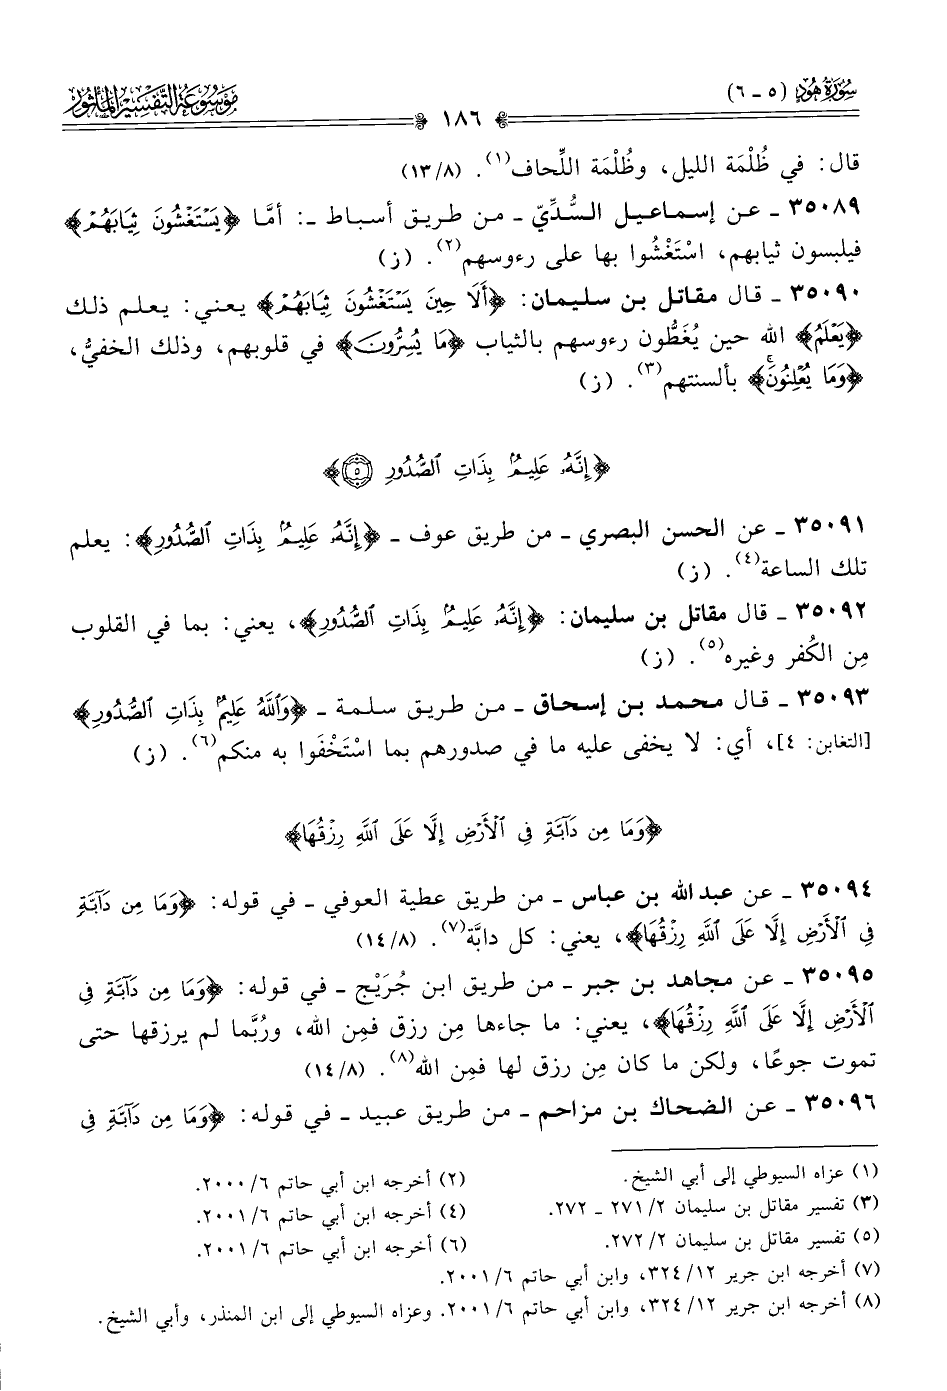 سُورَةُ هُودٍ (٥ - ٦)
مَوْسُوعَةُ التَّفْسِيرِ المَأْثُورِ
١٨٦
قال: في ظُلْمَة الليل، وظُلْمَة اللِّحاف(١). (١٣/٨)
٣٥٠٨٩ - عن إسماعيل السُّدِّيّ - من طريق أسباط -: أمَّا ﴿يَسْتَغْشُونَ ثِيَابَهُمْ﴾
فيلبسون ثيابهم، اسْتَغْشُوا بها على رءوسهم(٢). (ز)
٣٥٠٩٠ - قال مقاتل بن سليمان: ﴿أَلَا حِينَ يَسْتَغْشُونَ ثِيَابَهُمْ﴾ يعني: يعلم ذلك
﴿يَعْلَمُ﴾ الله حين يُغَطُّون رءوسهم بالثياب ﴿مَا يُسِرُّونَ﴾ في قلوبهم، وذلك الخفيُّ،
﴿وَمَا يُعْلِنُونَ﴾ بألسنتهم(٣). (ز)
﴿إِنَّهُ عَلِيمٌ بِذَاتِ الصُّدُورِ ٥﴾
٣٥٠٩١ - عن الحسن البصري - من طريق عوف - ﴿إِنَّهُ عَلِيمٌ بِذَاتِ الصُّدُورِ﴾: يعلم
تلك الساعة(٤). (ز)
٣٥٠٩٢ - قال مقاتل بن سليمان: ﴿إِنَّهُ عَلِيمٌ بِذَاتِ الصُّدُورِ﴾، يعني: بما في القلوب
مِن الكُفر وغيره(٥). (ز)
٣٥٠٩٣ - قال محمد بن إسحاق - من طريق سلمة - ﴿وَاللَّهُ عَلِيمٌ بِذَاتِ الصُّدُورِ﴾
[التغابن: ٤]، أي: لا يخفى عليه ما في صدورهم بما اسْتَخْفَوا به منكم(٦). (ز)
﴿وَمَا مِن دَآبَّةٍ فِي الْأَرْضِ إِلَّا عَلَى اللَّهِ رِزْقُهَا﴾
٣٥٠٩٤ - عن عبد الله بن عباس - من طريق عطية العوفي - في قوله: ﴿وَمَا مِن دَآبَّةٍ
فِي الْأَرْضِ إِلَّا عَلَى اللَّهِ رِزْقُهَا﴾، يعني: كل دابَّة(٧). (١٤/٨)
٣٥٠٩٥ - عن مجاهد بن جبر - من طريق ابن جُرَيْج - في قوله: ﴿وَمَا مِن دَآبَّةٍ فِي
الْأَرْضِ إِلَّا عَلَى اللَّهِ رِزْقُهَا﴾، يعني: ما جاءها مِن رزق فمِن الله، ورُبَّما لم يرزقها حتى
تموت جوعًا، ولكن ما كان مِن رزق لها فمِن الله(٨). (١٤/٨)
٣٥٠٩٦ - عن الضحاك بن مزاحم - من طريق عبيد - في قوله: ﴿وَمَا مِن دَآبَّةٍ فِي
(١) عزاه السيوطي إلى أبي الشيخ.
(٢) أخرجه ابن أبي حاتم ٦/ ٢٠٠٠.
(٣) تفسير مقاتل بن سليمان ٢/ ٢٧١ - ٢٧٢.
(٤) أخرجه ابن أبي حاتم ٦/ ٢٠٠١.
(٥) تفسير مقاتل بن سليمان ٢/ ٢٧٢.
(٦) أخرجه ابن أبي حاتم ٦/ ٢٠٠١.
(٧) أخرجه ابن جرير ١٢/ ٣٢٤، وابن أبي حاتم ٦/ ٢٠٠١.
(٨) أخرجه ابن جرير ١٢/ ٣٢٤، وابن أبي حاتم ٦/ ٢٠٠١. وعزاه السيوطي إلى ابن المنذر، وأبي الشيخ.